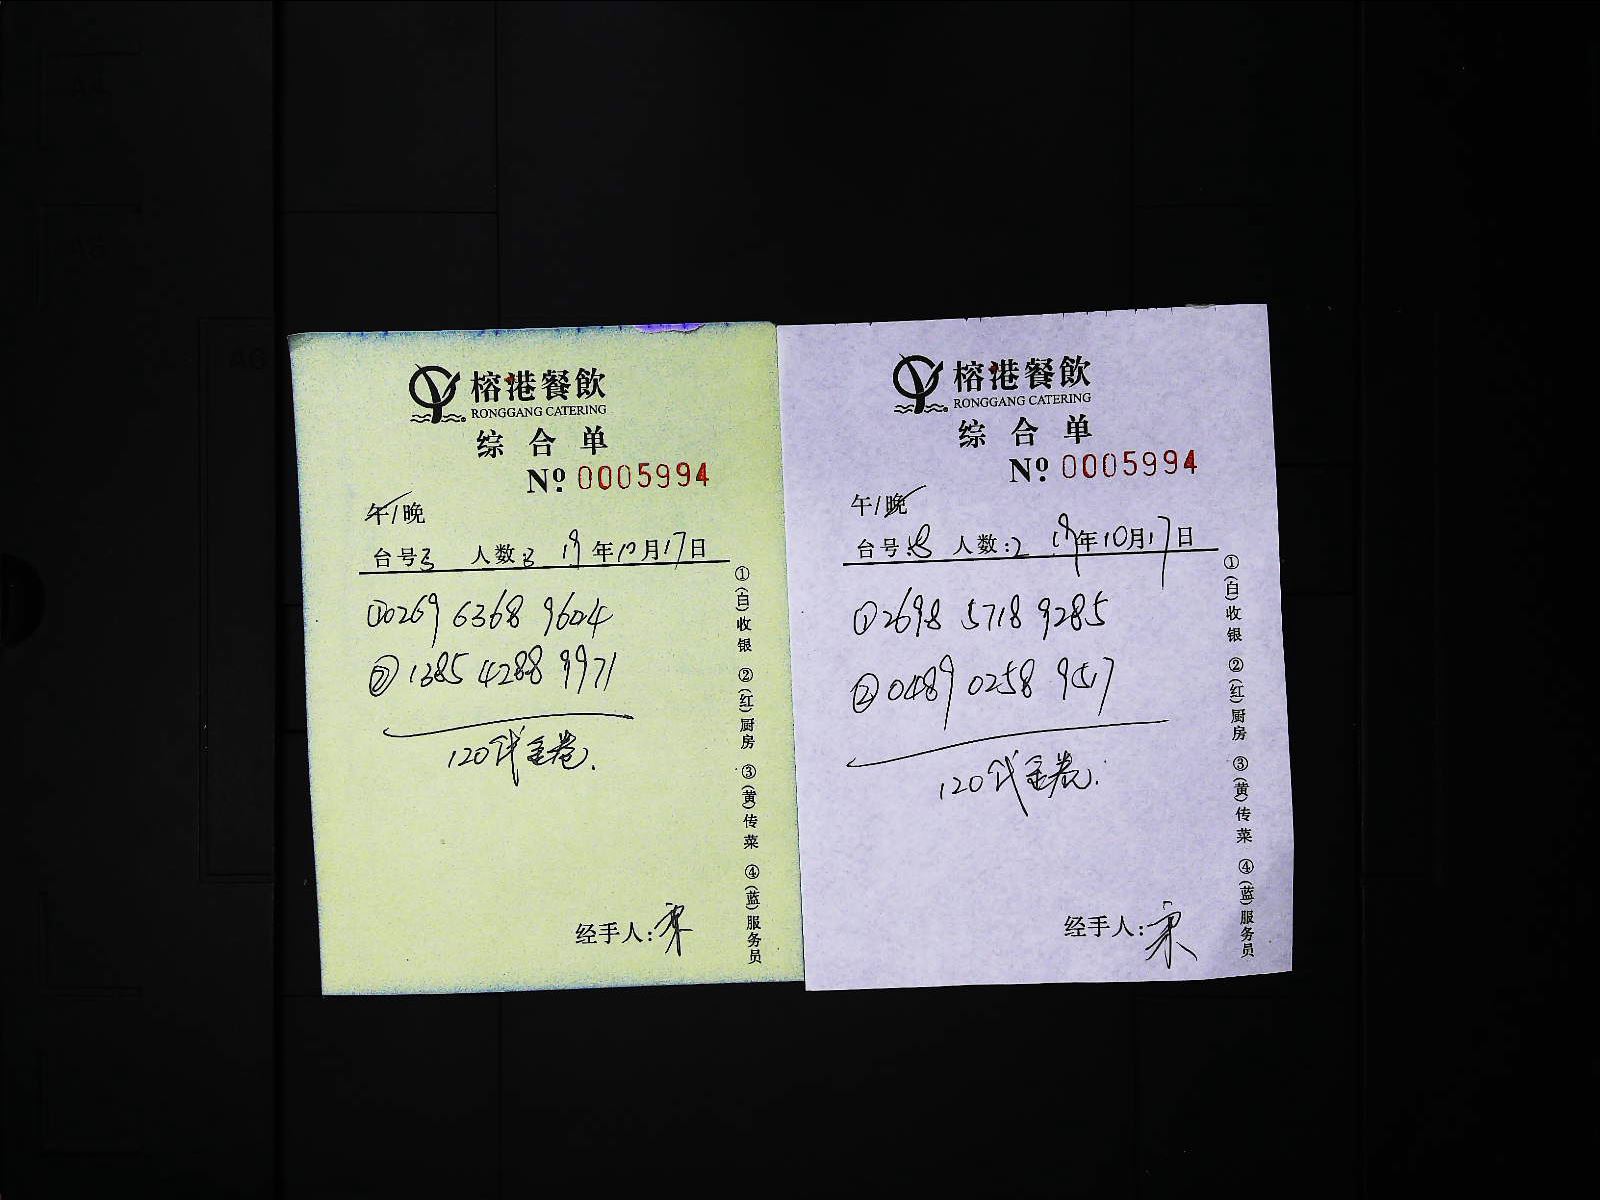 榕港餐飲
RONGGANG CATERING
综合单
Nº 0005994
午/晚
台号 3 人数: 3 19年10月17日
①0269 6368 9604
②1385 4288 9971
120代金卷.
经手人:
①(白)收银 ②(红)厨房 ③(黄)传菜 ④(蓝)服务员
榕港餐飲
RONGGANG CATERING
综合单
Nº 0005994
午/晚
台号: 人数: 2 19年10月17日
①2698 5718 9285
②0489 0258 9517
120代金卷.
经手人:
①(白)收银 ②(红)厨房 ③(黄)传菜 ④(蓝)服务员